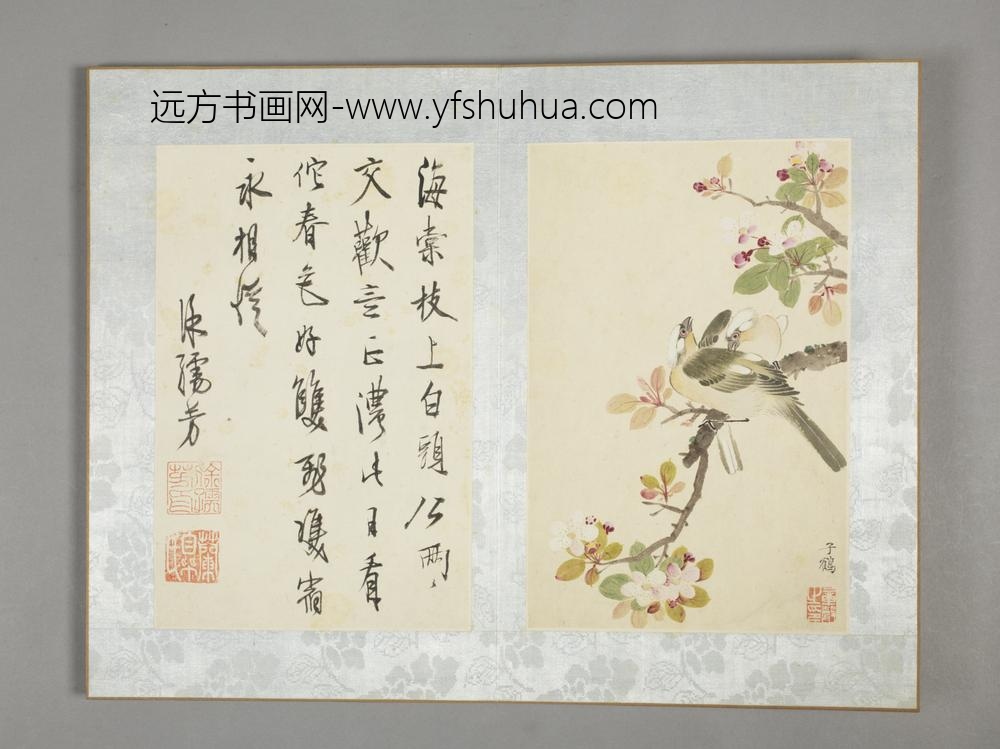 远方书画网-www.yfshuhua.com
海棠枝上白頭公兩〻
交歡意正濃此日看
佗春色好雙飛雙宿
永相從
徐孺芳
子鶴